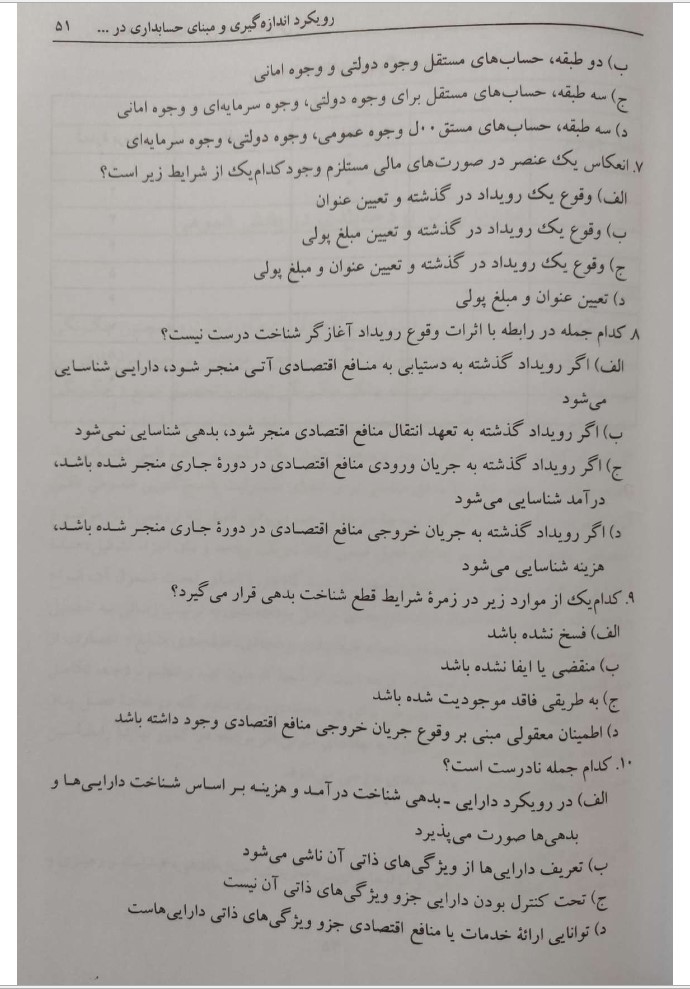 رویکرد اندازه‌گیری و مبنای حسابداری در ... ۵۱
ب) دو طبقه، حساب‌های مستقل وجوه دولتی و وجوه امانی
ج) سه طبقه، حساب‌های مستقل برای وجوه دولتی، وجوه سرمایه‌ای و وجوه امانی
د) سه طبقه، حساب‌های مستق۰۰ل وجوه عمومی، وجوه دولتی، وجوه سرمایه‌ای
۷. انعکاس یک عنصر در صورت‌های مالی مستلزم وجود کدام‌یک از شرایط زیر است؟
الف) وقوع یک رویداد در گذشته و تعیین عنوان
ب) وقوع یک رویداد در گذشته و تعیین مبلغ پولی
ج) وقوع یک رویداد در گذشته و تعیین عنوان و مبلغ پولی
د) تعیین عنوان و مبلغ پولی
۸. کدام جمله در رابطه با اثرات وقوع رویداد آغازگر شناخت درست نیست؟
الف) اگر رویداد گذشته به دستیابی به منافع اقتصادی آتی منجر شود، دارایی شناسایی
می‌شود
ب) اگر رویداد گذشته به تعهد انتقال منافع اقتصادی منجر شود، بدهی شناسایی نمی‌شود
ج) اگر رویداد گذشته به جریان ورودی منافع اقتصادی در دورهٔ جاری منجر شده باشد،
درآمد شناسایی می‌شود
د) اگر رویداد گذشته به جریان خروجی منافع اقتصادی در دورهٔ جاری منجر شده باشد،
هزینه شناسایی می‌شود
۹. کدام‌یک از موارد زیر در زمرهٔ شرایط قطع شناخت بدهی قرار می‌گیرد؟
الف) فسخ نشده باشد
ب) منقضی یا ایفا نشده باشد
ج) به طریقی فاقد موجودیت شده باشد
د) اطمینان معقولی مبنی بر وقوع جریان خروجی منافع اقتصادی وجود داشته باشد
۱۰. کدام جمله نادرست است؟
الف) در رویکرد دارایی ـ بدهی شناخت درآمد و هزینه بر اساس شناخت دارایی‌ها و
بدهی‌ها صورت می‌پذیرد
ب) تعریف دارایی‌ها از ویژگی‌های ذاتی آن ناشی می‌شود
ج) تحت کنترل بودن دارایی جزو ویژگی‌های ذاتی آن نیست
د) توانایی ارائهٔ خدمات یا منافع اقتصادی جزو ویژگی‌های ذاتی دارایی‌هاست